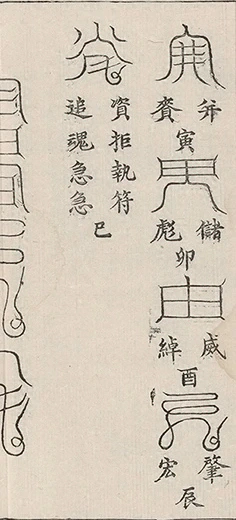 并
寅
儲彪
卯
威綽
酉
肇宏
辰
資拒執符
追魂急急
巳